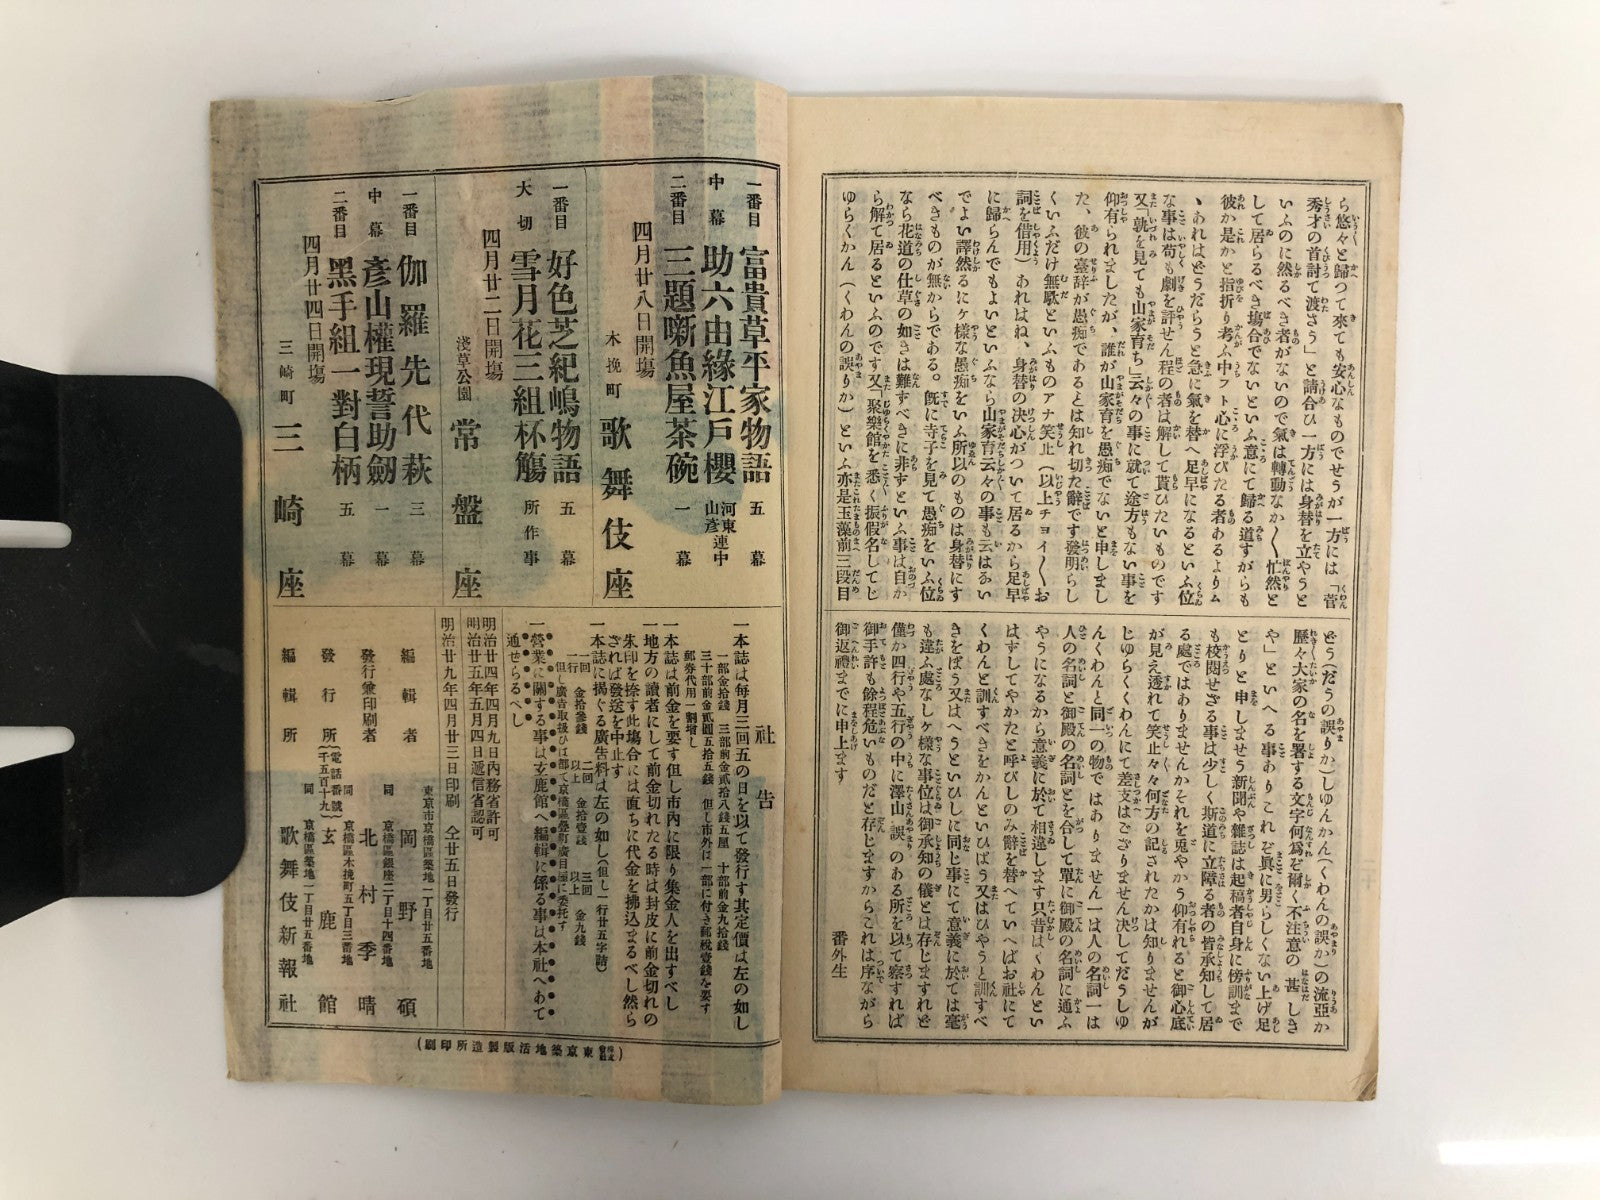 ら悠々と歸つて來ても安心なものでせうが一方には「菅
秀才の首討て渡さう」と請合ひ一方には身替を立やうと
いふのに然るべき者がないので氣は轉動なか〱忙然と
して居らるべき塲合でないといふ意にて歸る道すがらも
彼か是かと指折り考ふ中フト心に浮びたる者あるよりム
ヽあれはどうだらうと急に氣を替へ足早になるといふ位
な事は苟も劇を評せん程の者は解して貰ひたいものです
又「孰を見ても山家育ち」云々の事に就て途方もない事を
仰有られましたが、誰が山家育を愚痴でないと申しまし
た、彼の臺辞が愚痴であるとは知れ切た辭です發明らし
くいふだけ無駄といふものアナ笑止（以上チョイ〱お
詞を借用）あれはね、身替の决心がついて居るから足早
に歸らんでもよいといふなら山家育云々の事も云はない
でよい譯然るにヶ樣な愚痴をいふ所以のものは身替にす
べきものが無からである。既に寺子を見て愚痴をいふ位
なら花道の仕草の如きは難すべきに非すといふ事は自か
ら解て居るといふのです又「聚樂館を悉く振假名してじ
ゆらくかん（くわんの誤りか）といふ亦是玉藻前三段目
どう（だうの誤りか）しゆんかん（くわんの誤か）の流亞か
歷々大家の名を署する文字何爲ぞ爾く不注意の甚しき
や」といへる事ありこれぞ眞に男らしくない上げ足
とりと申しませう新聞や雜誌は起稿者自身に傍訓まで
も校閱せざる事は少しく斯道に立障る者の皆承知して居
る處ではありませんかそれを兎やかう仰有れると御心底
が見え透れて笑止々々何方の記されたかは知りませんが
じゆらくくわんにて差支はござりません决してだうしゆ
んくわんと同一の物ではありません一は人の名詞一は
人の名詞と御殿の名詞とを合して單に御殿の名詞に通ふ
やうになるから意義に於て相違します只昔はくわんとい
はずしてやかたと呼びしのみ辭を替へていへばお社にて
くわんと訓すべきをかんといひばう又はひやうと訓すべ
きをぼう又はへうといひしに同じ事にて意義に於ては毫
も違ふ處なしヶ樣な事位は御承知の儀とは存じますれど
僅か四行や五行の中に澤山誤のある所を以て察すれば
御手許も餘程危いものだと存じますからこれは序ながら
御返禮までに申上ます
番外生
一番目 富貴草平家物語 五幕
中幕 助六由緣江戸櫻 河東連中 山彥
二番目 三題噺魚屋茶碗 一幕
四月廿八日開塲
木挽町 歌舞伎座
一番目 好色芝紀嶋物語 五幕
大切 雪月花三組杯觴 所作事
四月廿二日開塲
淺草公園 常盤座
一番目 伽羅先代萩 三幕
中幕 彥山權現誓助劔 一幕
二番目 黑手組一對白柄 五幕
四月廿四日開塲
三崎町 三崎座
社告
一本誌は每月三回五の日を以て發行す其定價は左の如し
一部金拾錢 三部前金貳拾八錢五厘 十部前金九拾錢
三十部前金貳圓五拾五錢 但し市外は一部に付き郵稅壹錢を要す
郵券代用一割增し
一本誌は前金を要す但し市內に限り集金人を出すべし
一地方の讀者にして前金切れたる時は封皮に前金切れの
朱印を捺す此塲合には直ちに代金を拂込まるべし然ら
ざれば發送を中止す
一本誌に揭ぐる廣告料は左の如し（但し一行廿五字詰）
一回一行 金拾參錢 二回以上 金拾壹錢 三回以上 金九錢
但し廣吿取扱ひは一部て京橋區疊町廣目屋に委托す
一營業に關する事は玄鹿館へ編輯に係る事は本社へあて
通せらるべし
明治廿四年四月九日內務省許可
明治廿五年五月四日遞信省認可
明治廿九年四月廿三日印刷 仝廿五日發行
東京市京橋區築地一丁目廿五番地
編輯者 岡野碩
同 京橋區銀座二丁目十四番地
發行兼印刷者 北村季晴
同 京橋區木挽町五丁目三番地
發行所 （電話番號千五百十九） 玄鹿館
同 京橋區築地一丁目廿五番地
編輯所 歌舞伎新報社
（株式會社東京築地活版製造所印刷）